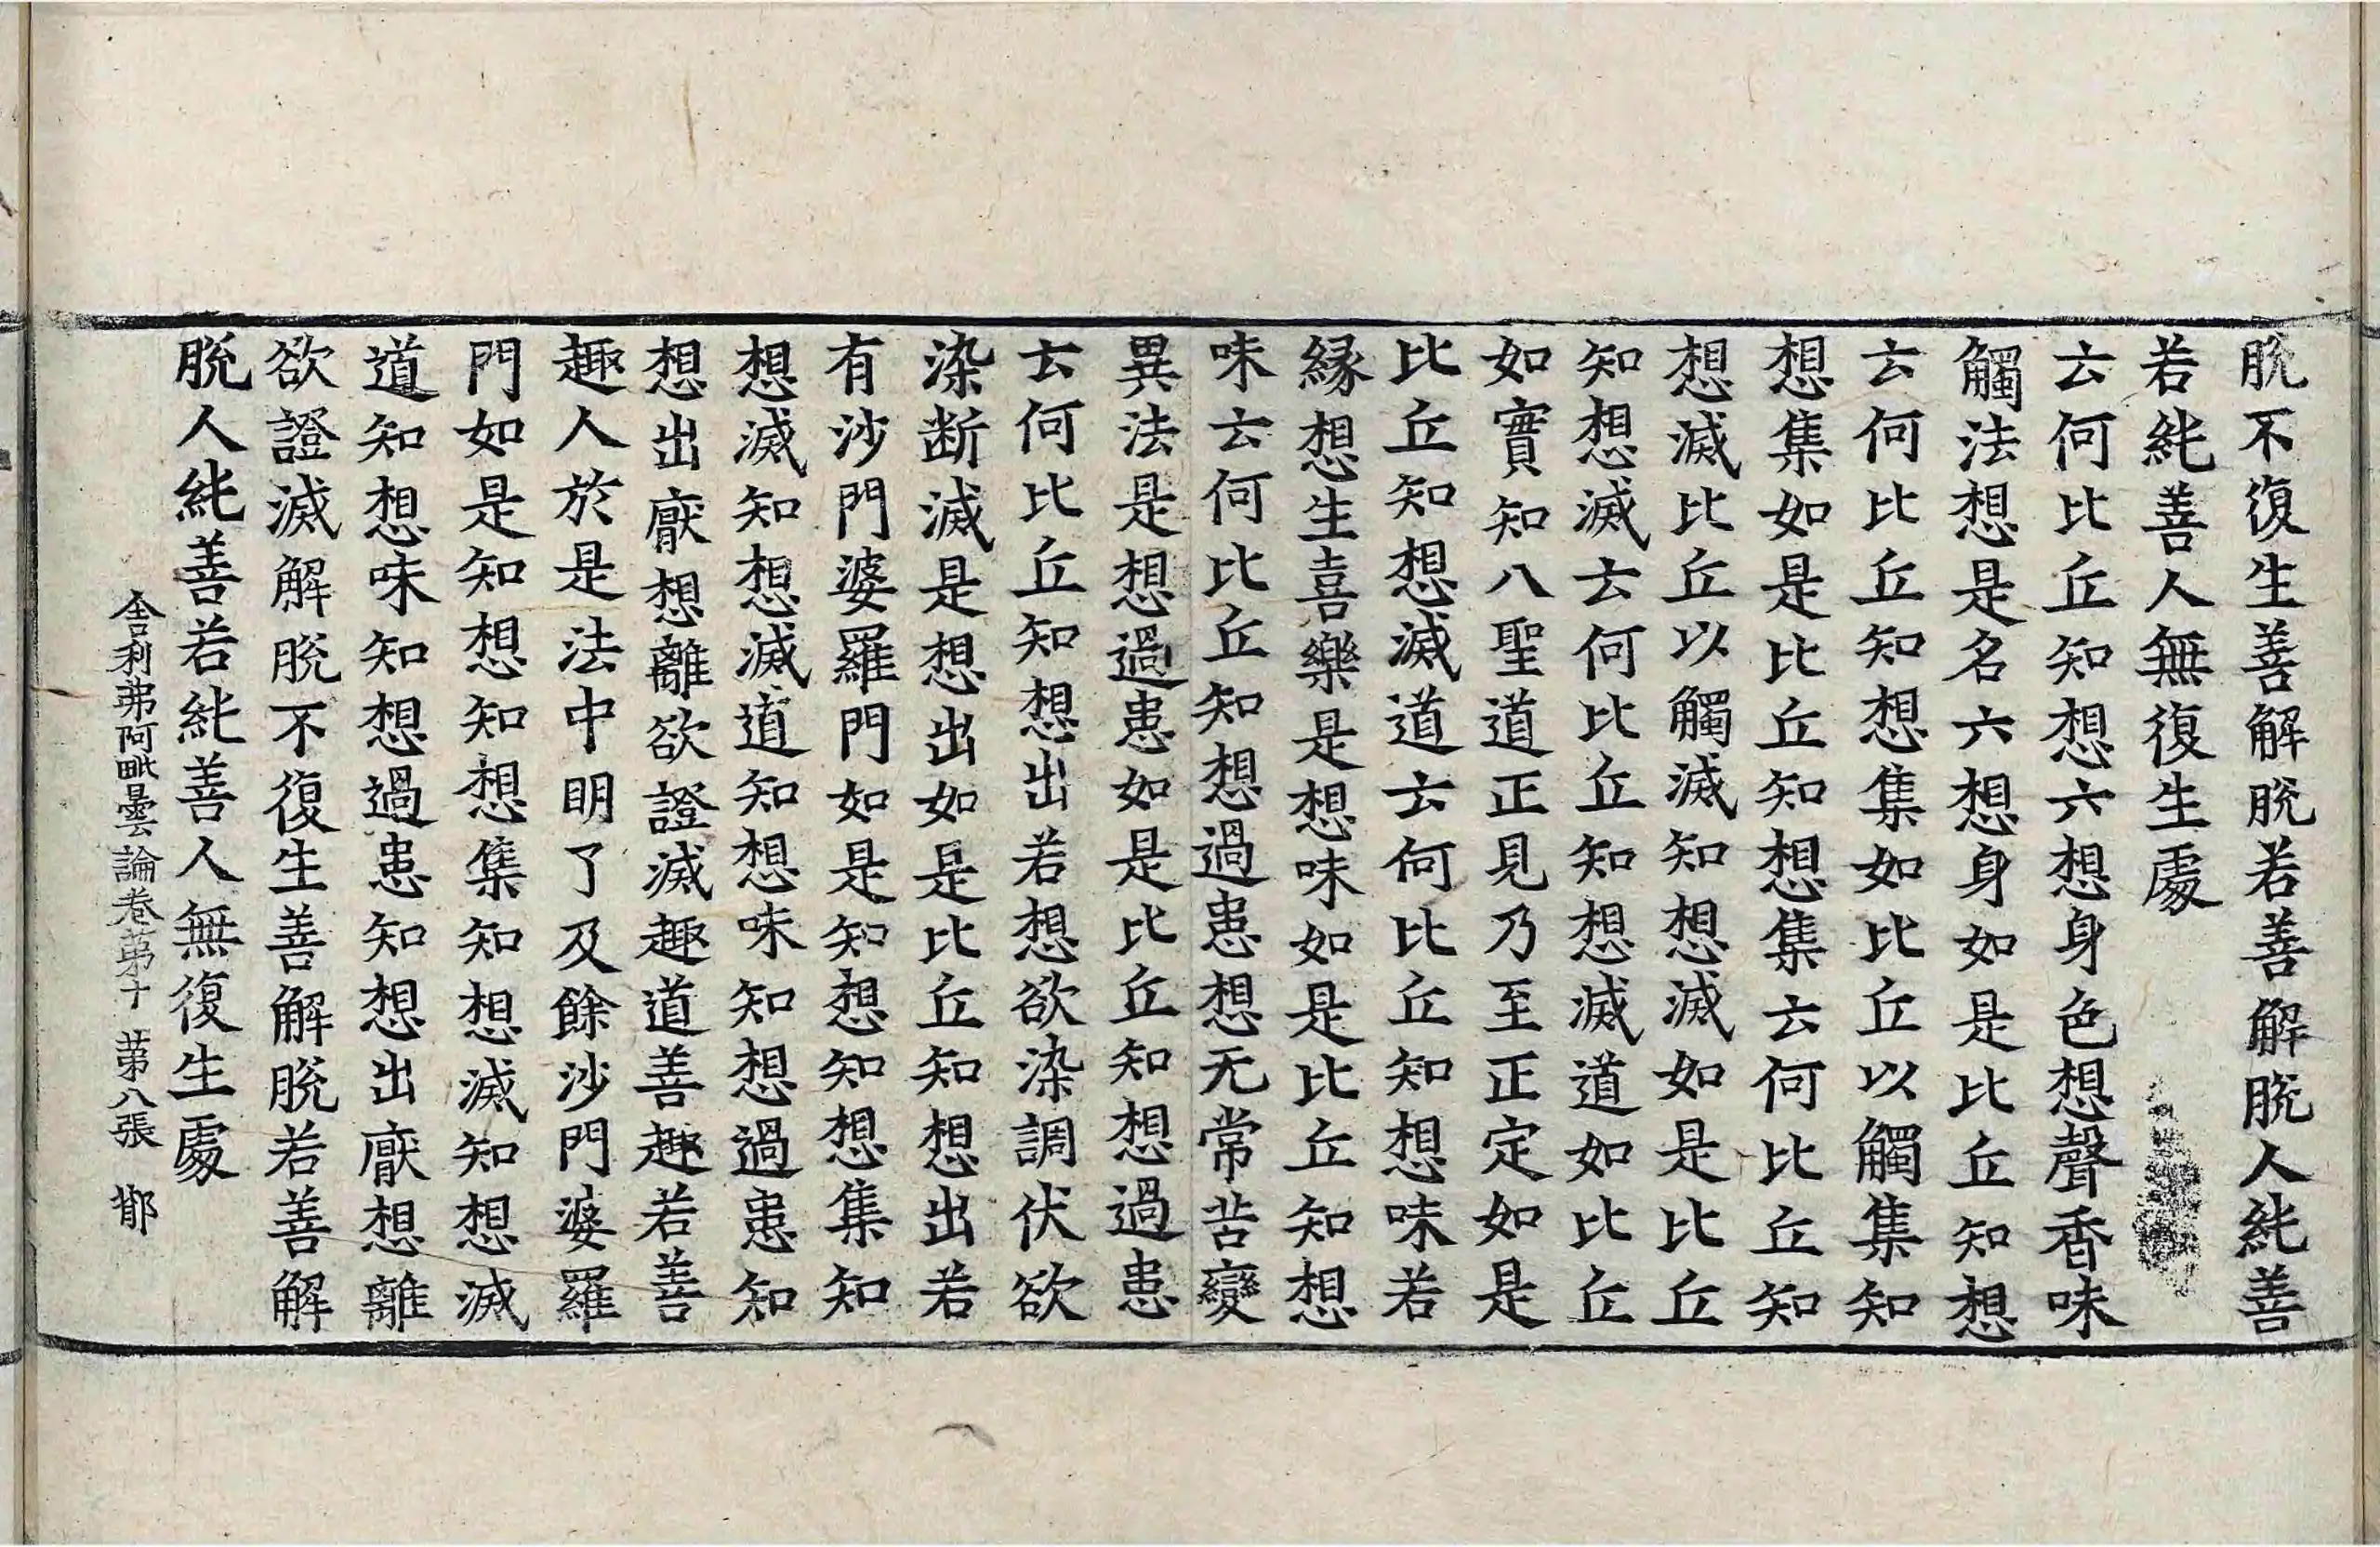 脱不復生善解脱若善解脱人純善
若純善人無復生處
云何比丘知想六想身色想聲香味
觸法想是名六想身如是比丘知想
云何比丘知想集如比丘以觸集知
想集如是比丘知想集云何比丘知
想滅比丘以觸滅知想滅如是比丘
知想滅云何比丘知想滅道如比丘
如實知八聖道正見乃至正定如是
比丘知想滅道云何比丘知想味若
縁想生喜樂是想味如是比丘知想
味云何比丘知想過患想无常苦變
異法是想過患如是比丘知想過患
云何比丘知想出若想欲染調伏欲
染断滅是想出如是比丘知想出若
有沙門婆羅門如是知想知想集知
想滅知想滅道知想味知想過患知
想出厭想離欲證滅趣道善趣若善
趣人於是法中明了及餘沙門婆羅
門如是知想知想集知想滅知想滅
道知想味知想過患知想出厭想離
欲證滅解脱不復生善解脱若善解
脱人純善若純善人無復生處
舎利弗阿毗曇論卷苐十 苐八張 鄁